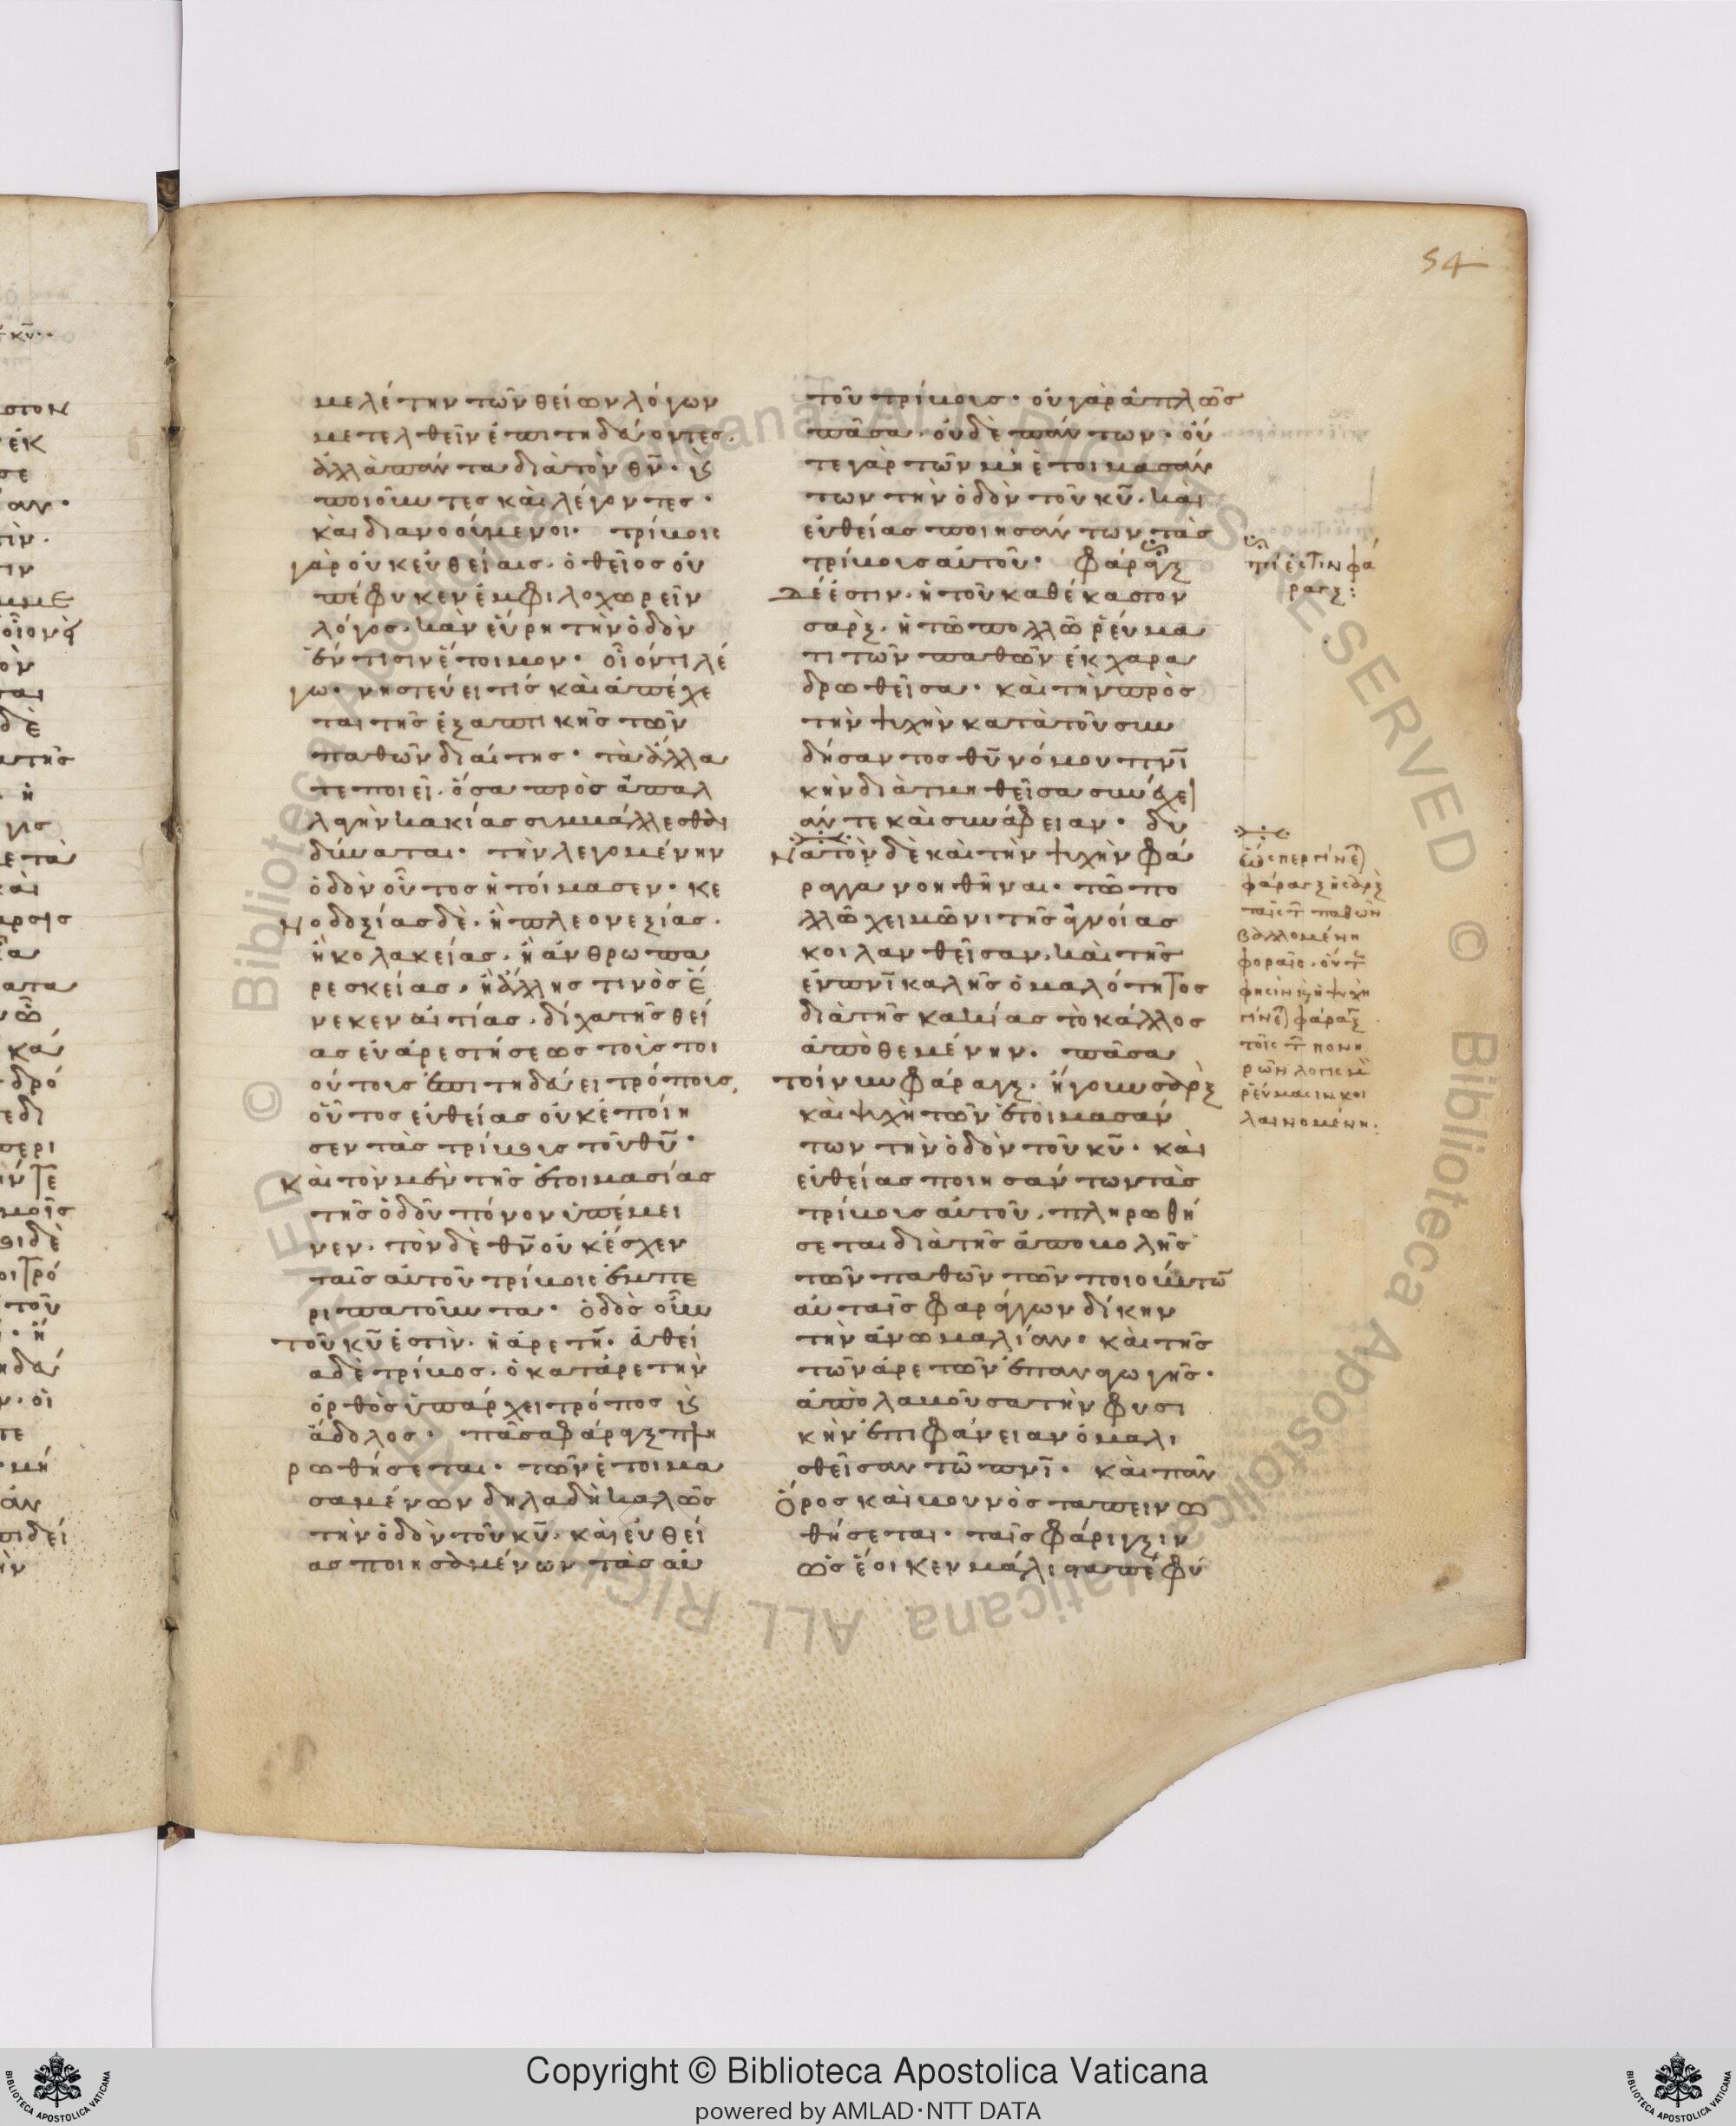 54
μελέτην τῶν θείων λόγων
μετελθεῖν ἐπιτηδεύοντες.
ἀλλὰ πάντα διὰ τὸν θν̄. καὶ
ποιοῦντες καὶ λέγοντες·
καὶ διανοούμενοι· τρίβοις
γὰρ οὐκ εὐθείαις. ὁ θεῖος οὐ
πέφυκεν ἐμφιλοχωρεῖν
λόγος. κἂν εὕρη τὴν ὁδὸν
ἔν τισιν ἕτοιμον· οἷόν τι λέ
γω· νηστεύει τίς καὶ ἀπέχε
ται τῆς ἐξαπτικῆς τῶν
παθῶν διαίτης· τὰ ἄλλα
τε ποιεῖ. ὅσα πρὸς ἀπαλ
λαγὴν κακίας συμβάλλεσθαι
δύναται· τὴν λεγομένην
ὁδὸν οὗτος ἡτοίμασεν· κε
νοδοξίας δὲ. ἢ πλεονεξίας.
ἢ κολακείας. ἢ ἀνθρωπα
ρεσκείας. ἢ ἄλλης τινὸς ἕ
νεκεν αἰτίας. δίχα τῆς θεί
ας εὐαρεστήσεως τοῖς τοι
ούτοις ἐπιτηδεύει τρόποις,
οὗτος εὐθείας οὐκ ἐποίη
σεν τὰς τρίβους τοῦ θῡ·
καὶ τὸν μὲν τῆς ἑτοιμασίας
τῆς ὁδοῦ πόνον ὑπέμει
νεν. τὸν δὲ θν̄ οὐκ ἔσχεν
ταῖς αὐτοῦ τρίβοις ἐμπε
ριπατοῦντα· ὁδὸς οὖν
τοῦ κῡ ἐστὶν. ἡ ἀρετὴ· εὐθεῖ
α δὲ τρίβος. ὁ κατ' ἀρετὴν
ὀρθὸς ὑπάρχει τρόπος καὶ
ἄδολος· πᾶσα φάραγξ πλη
ρωθήσεται· τῶν ἑτοιμα
σαμένων δηλαδὴ καλῶς
τὴν ὁδὸν τοῦ κῡ. καὶ εὐθεί
ας ποιησαμένων τὰς αὐ
τοῦ τρίβους· οὐ γὰρ ἁπλῶς
πᾶσα. οὐδὲ πάντων· οὔ
τε γὰρ τῶν μὴ ἑτοιμασάν
των τὴν ὁδὸν τοῦ κῡ. καὶ
εὐθείας ποιησάντων τὰς
τρίβους αὐτοῦ· φάραγξ
δέ ἐστιν. ἡ τοῦ καθέκαστον
σαρξ. ἡ τῶ πολλῶ ῥεύμα
τι τῶν παθῶν ἐκχαρα
δρωθεῖσα· καὶ τὴν πρὸς
τὴν ψυχὴν κατὰ τοῦ συν
δήσαντος θῡ νόμου πνῑ
κὴν διατμηθεῖσα συνέχει
άν τε καὶ συνάφειαν· δυ
νατὸν δὲ καὶ τὴν ψυχὴν φά
ραγγα νοηθῆναι· τῶ πο
λλῶ χειμῶνι τῆς ἀγνοίας
κοιλανθεῖσαν. καὶ τῆς
ἐν πνῑ καλῆς ὁμαλότητος
διὰ τῆς κακίας τὸ κάλλος
ἀποθεμένην· πᾶσα
τοίνυν φάραγξ. ἤγουν σὰρξ
καὶ ψυχὴ τῶν ἑτοιμασάν
των τὴν ὁδὸν τοῦ κῡ· καὶ
εὐθείας ποιησάντων τὰς
τρίβους αὐτοῦ. πληρωθή
σεται διὰ τῆς ἀποβολῆς
τῶν παθῶν τῶν ποιούντω̄
αὐταῖς φαράγγων δίκην
τὴν ἀνωμαλίαν· καὶ τῆς
τῶν ἀρετῶν ἐπαναγωγῆς·
ἀπολαβοῦσα τὴν φυσι
κὴν ἐπιφάνειαν ὁμαλι
σθεῖσαν τῶ πνῑ· καὶ πᾶν
ὄρος καὶ βουνὸς ταπεινω
θήσεται· ταῖς φάραγξιν
ὡς ἔοικεν μάλιστα πέφυ
τί ἐστιν φά
ραγξ:
ὥσπερ γίνετ(αι)
φάραγξ ἡ σὰρξ
ταῖς τ(ῶν) παθῶν
βαλλομένη
φοραῖς. οὕτ(ως)
φησὶν καὶ ἡ ψυχὴ
γίνετ(αι) φάραγξ
τοῖς τ(ῶν) πονη
ρῶν λογισμ(ῶν)
ῥεύμασιν κοι
λαινομένη:
Copyright © Biblioteca Apostolica Vaticana
powered by AMLAD·NTT DATA